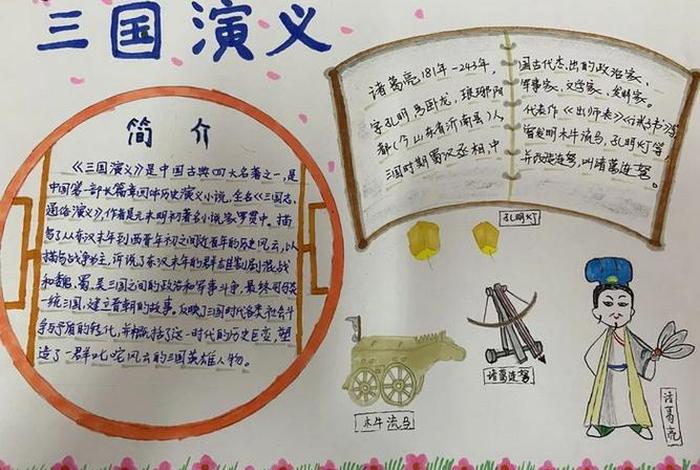 三国演义
简介
《三国演义》是中国古典四大名著之一,是
中国第一部长篇章回体历史演义小说,全名《三国志
通俗演义》,作者是元末明初著名小说家罗贯中。描
写了从东汉末年到西晋年初之间近百年的历史风云,以
描写战争为主,诉说了东汉末年的群雄割剧混战
和魏、蜀、吴三国之间的政治和军事斗争,最终司马炎
一统三国,建立晋朝的故事。反映了三国时代各类社会斗
争与矛盾的转化,并概括了这一时代的历史巨变,塑
造了一群叱咤风云的三国英雄人物。
诸葛亮181年-243年,
字孔明,号卧龙,琅琊阳
都(今山东省沂南县)人
三国时期蜀汉丞相,中
国古代杰出的政治家、
军事家、文学家、发明家。
代表作《出师表》《诫子书》等
曾发明木牛流马,孔明灯等,
并改造连弩,叫诸葛连弩。
孔明灯
木牛流马
诸葛连弩
诸葛亮